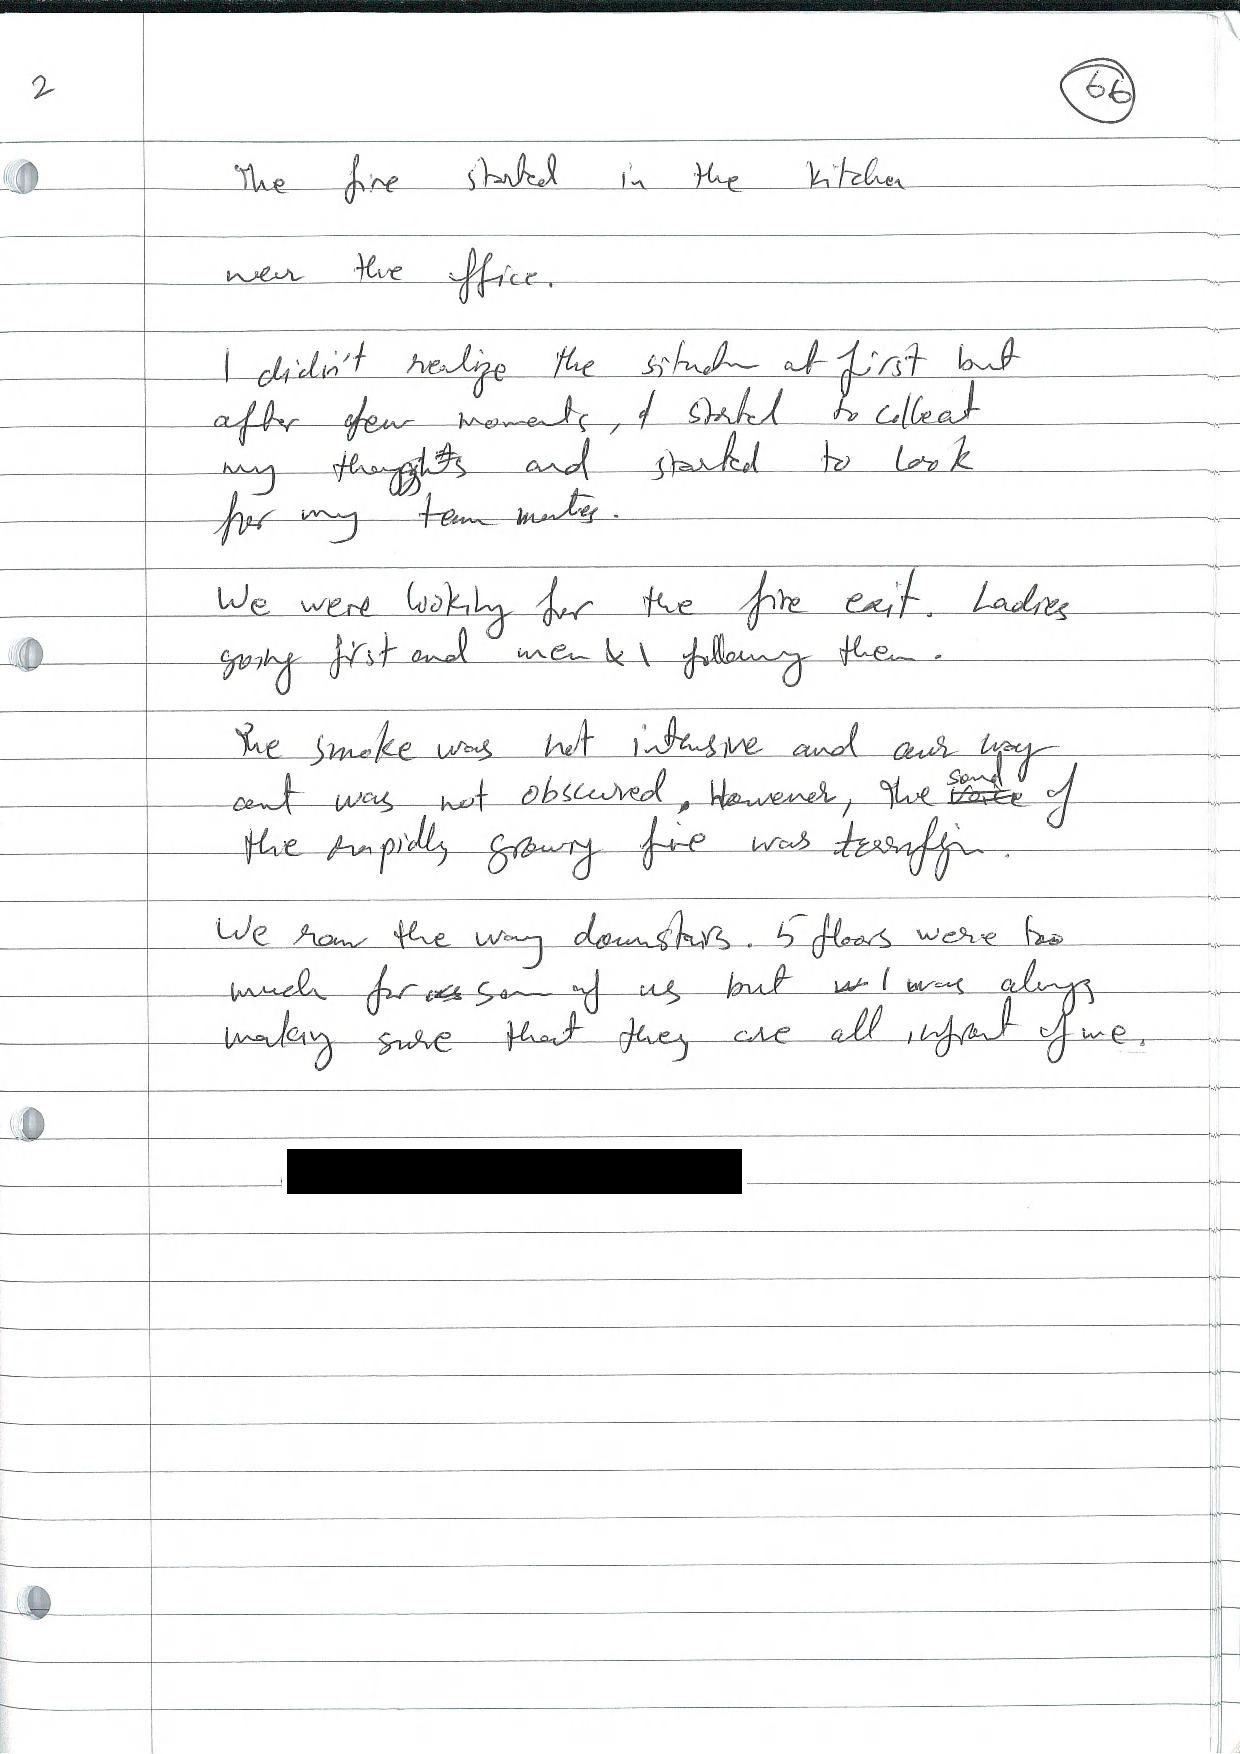 2
66
The fire started in the kitchen
near the office.
I didin't realize the situation at first but
after few moments, I started to colleat
my thoughts and started to look
for my team mates.
We were looking for the fire exit. Ladies
going first and men & I following them.
The smoke was not intensive and our way
out was not obscured, However, the sond voice of
the rapidly growing fire was
We ran the way downstairs. 5 floors were too
much for some of us but I was always
making sure that they are all infront of me.